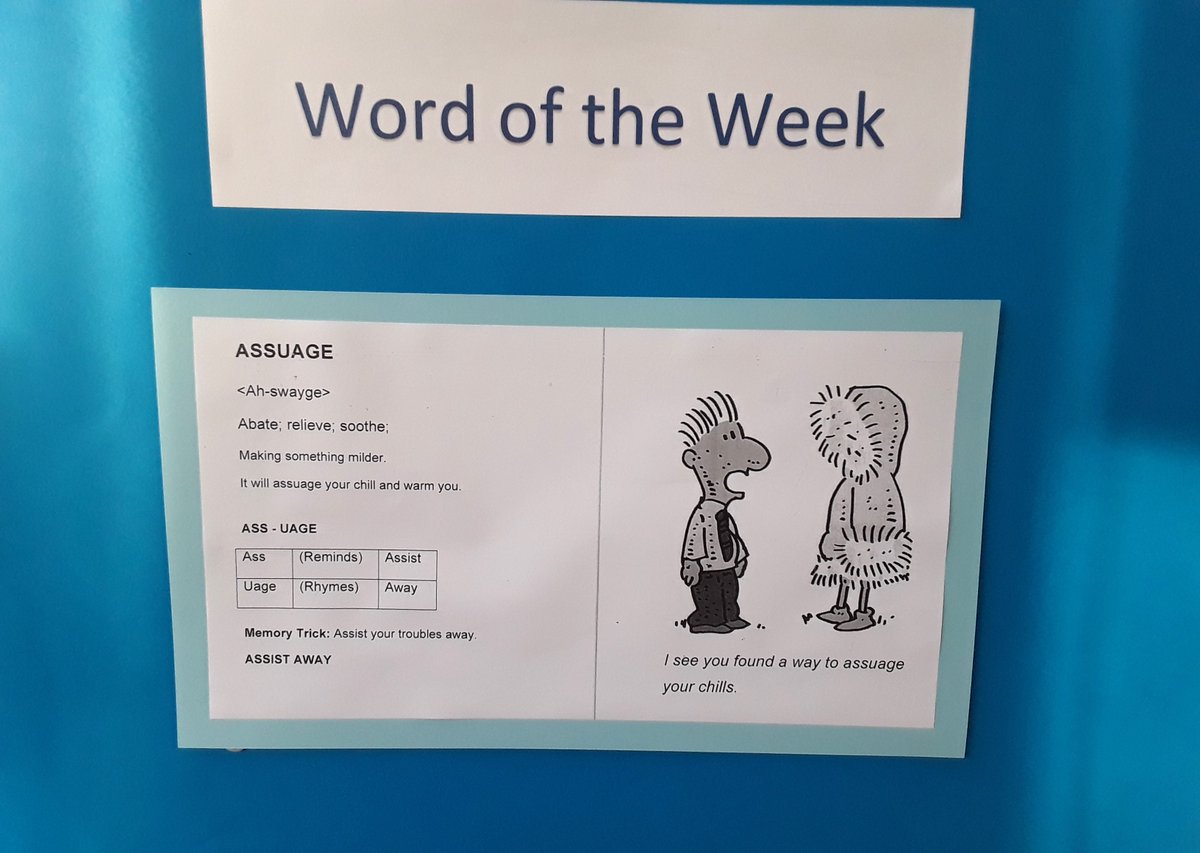 Word of the Week
ASSUAGE
<Ah-swayge>
Abate; relieve; soothe;
Making something milder.
It will assuage your chill and warm you.
ASS - UAGE
Ass (Reminds) Assist
Uage (Rhymes) Away
Memory Trick: Assist your troubles away.
ASSIST AWAY
I see you found a way to assuage
your chills.